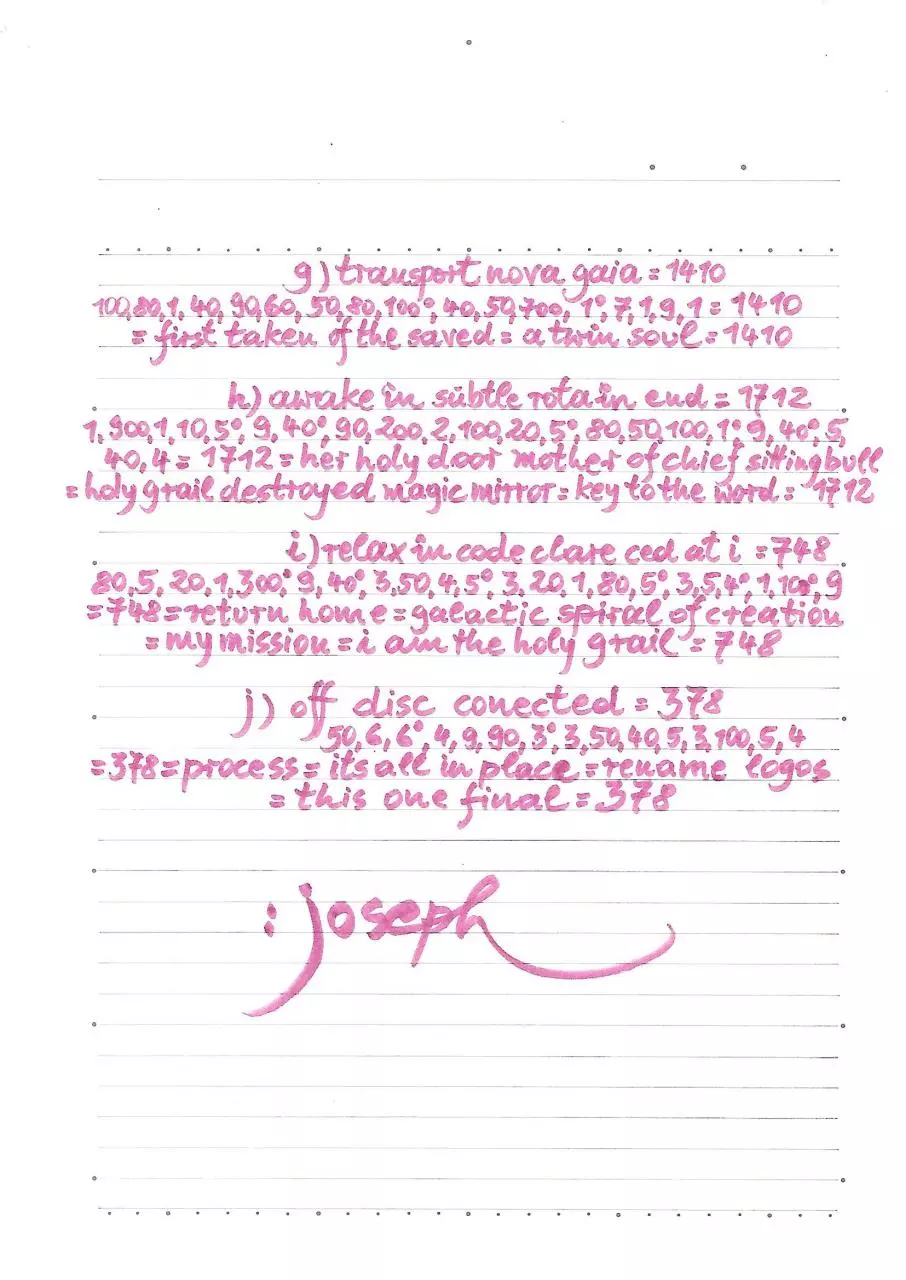 g) transport nova gaia = 1410
100,80,1,40,90,60,50,80,100°,40,50,700,1°,7,1,9,1 = 1410
= first taken of the saved = a twin soul = 1410
h) awake in subtle rota in end = 1712
1,900,1,10,5°,9,40°,90,200,2,100,20,5°,80,50,100,1°,9,40°,5,
40,4 = 1712 = her holy door mother of chief sitting bull
= holy grail destroyed magic mirror = key to the word = 1712
i) relax in code clare ced at i = 748
80,5,20,1,300°,9,40°,3,50,4,5°,3,20,1,80,5°,3,5,4°,1,100°,9
= 748 = return home = galactic spiral of creation
= my mission = i am the holy grail = 748
j) off disc conected = 378
50,6,6°,4,9,90,3°,3,50,40,5,3,100,5,4
= 378 = process = its all in place = rename logos
= this one final = 378
: joseph